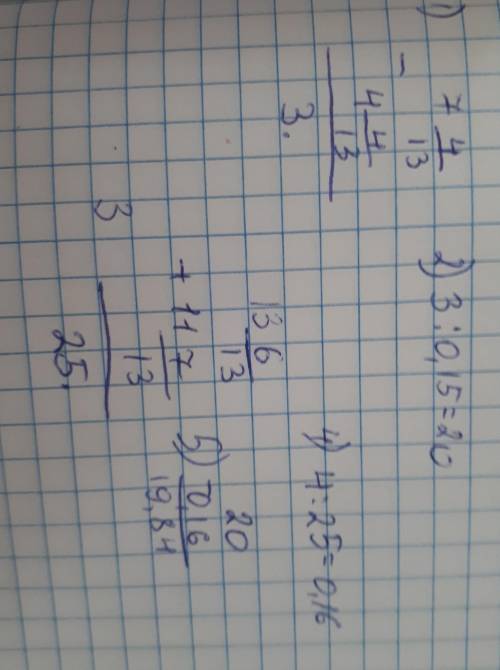 1) 7 4/13
− 4 4/13
3.
2) 3:0,15=20
3 13 6/13
+ 11 7/13
25.
4) 4:25=0,16
5) 20
0,16
19,84